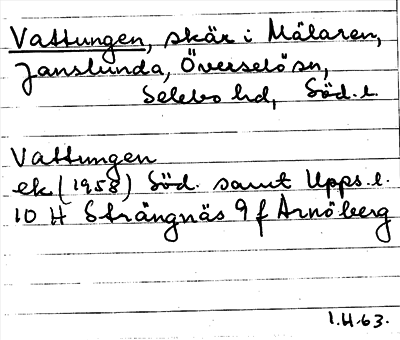 Vattungen, skär i Mälaren,
Janslunda, Överselö sn,
Selebo hd, Söd. l.
Vattungen
ek (1958) Söd. samt Upps. l.
10 H Strängnäs 9 f Arnöberg
I.H.63.